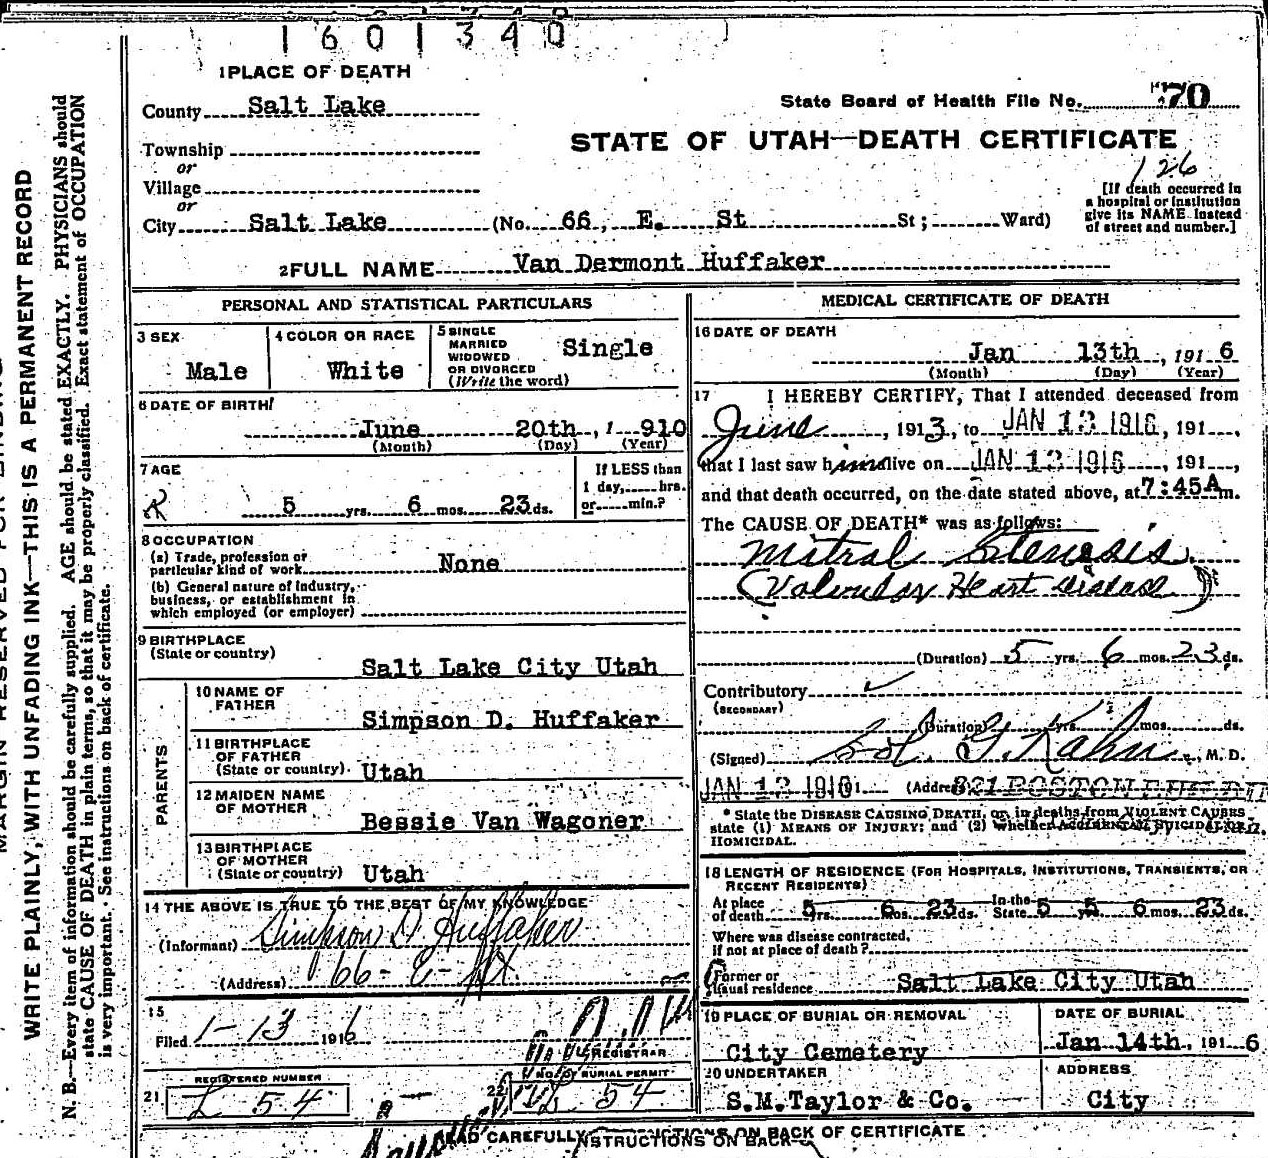 1601340
1 PLACE OF DEATH
County Salt Lake
State Board of Health File No. 70
Township
or
STATE OF UTAH—DEATH CERTIFICATE
126
Village
or
[If death occurred in
a hospital or institution
give its NAME instead
of street and number.]
City Salt Lake (No. 66, E. St St; Ward)
2 FULL NAME Van Dermont Huffaker
PERSONAL AND STATISTICAL PARTICULARS
3 SEX
Male
4 COLOR OR RACE
White
5 SINGLE
MARRIED
WIDOWED
OR DIVORCED
(Write the word)
Single
6 DATE OF BIRTH
June 20th, 1 910
(Month) (Day) (Year)
7 AGE
5 yrs. 6 mos. 23 ds.
If LESS than
1 day, hrs.
or min.?
8 OCCUPATION
(a) Trade, profession or
particular kind of work None
(b) General nature of industry,
business, or establishment in
which employed (or employer)
9 BIRTHPLACE
(State or country)
Salt Lake City Utah
PARENTS
10 NAME OF
FATHER
Simpson D. Huffaker
11 BIRTHPLACE
OF FATHER
(State or country) Utah
12 MAIDEN NAME
OF MOTHER
Bessie Van Wagoner
13 BIRTHPLACE
OF MOTHER
(State or country) Utah
14 THE ABOVE IS TRUE TO THE BEST OF MY KNOWLEDGE
(Informant) Simpson D. Huffaker
(Address) 66 - E - St.
15
Filed 1-13 1916
REGISTRAR
REGISTERED NUMBER
21 L 54
No. OF BURIAL PERMIT
22 L 54
MEDICAL CERTIFICATE OF DEATH
16 DATE OF DEATH
Jan 13th, 191 6
(Month) (Day) (Year)
17 I HEREBY CERTIFY, That I attended deceased from
June, 1913, to JAN 13 1916, 191,
that I last saw him alive on JAN 13 1916, 191,
and that death occurred, on the date stated above, at 7:45A m.
The CAUSE OF DEATH* was as follows:
Mitral Stenosis
(Valvular Heart disease)
(Duration) 5 yrs. 6 mos. 23 ds.
Contributory
(SECONDARY)
(Duration) yrs. mos. ds.
(Signed) G. Kahn, M. D.
JAN 13 1916 191 (Address) 321 BOSTON
* State the DISEASE CAUSING DEATH, or, in deaths from VIOLENT CAUSES
state (1) MEANS OF INJURY; and (2) whether ACCIDENTAL, SUICIDAL, or
HOMICIDAL.
18 LENGTH OF RESIDENCE (FOR HOSPITALS, INSTITUTIONS, TRANSIENTS, OR
RECENT RESIDENTS)
At place
of death 5 yrs. 6 mos. 23 ds. In the
State 5 5 yrs. 6 mos. 23 ds.
Where was disease contracted,
if not at place of death?
Former or
usual residence Salt Lake City Utah
19 PLACE OF BURIAL OR REMOVAL
City Cemetery
DATE OF BURIAL
Jan 14th, 191 6
20 UNDERTAKER
S.M.Taylor & Co.
ADDRESS
City
READ CAREFULLY INSTRUCTIONS ON BACK OF CERTIFICATE
MARGIN RESERVED FOR BINDING
WRITE PLAINLY, WITH UNFADING INK—THIS IS A PERMANENT RECORD
N. B.—Every item of information should be carefully supplied. AGE should be stated EXACTLY. PHYSICIANS should
state CAUSE OF DEATH in plain terms, so that it may be properly classified. Exact statement of OCCUPATION
is very important. See instructions on back of certificate.